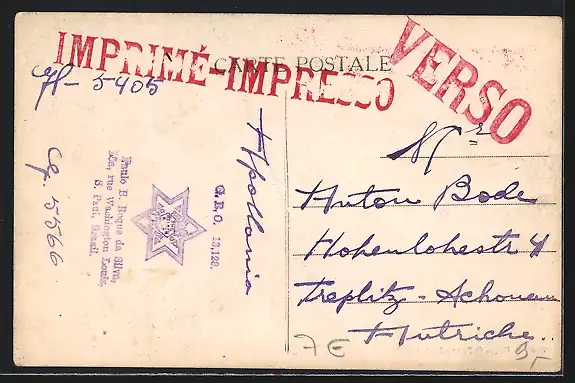 IMPRIMÉ-IMPRESSO
CARTE POSTALE
VERSO
5405
Cg. 5566
Paulo B. Roque da Silva
rue Washington Louis,
S. Paul, Brasil.
G.E.O. 13,128.
Apollonia
Mr
Anton Bode
Hohenlohestr 4
Treplitz - Achonau
Autriche.
7 €